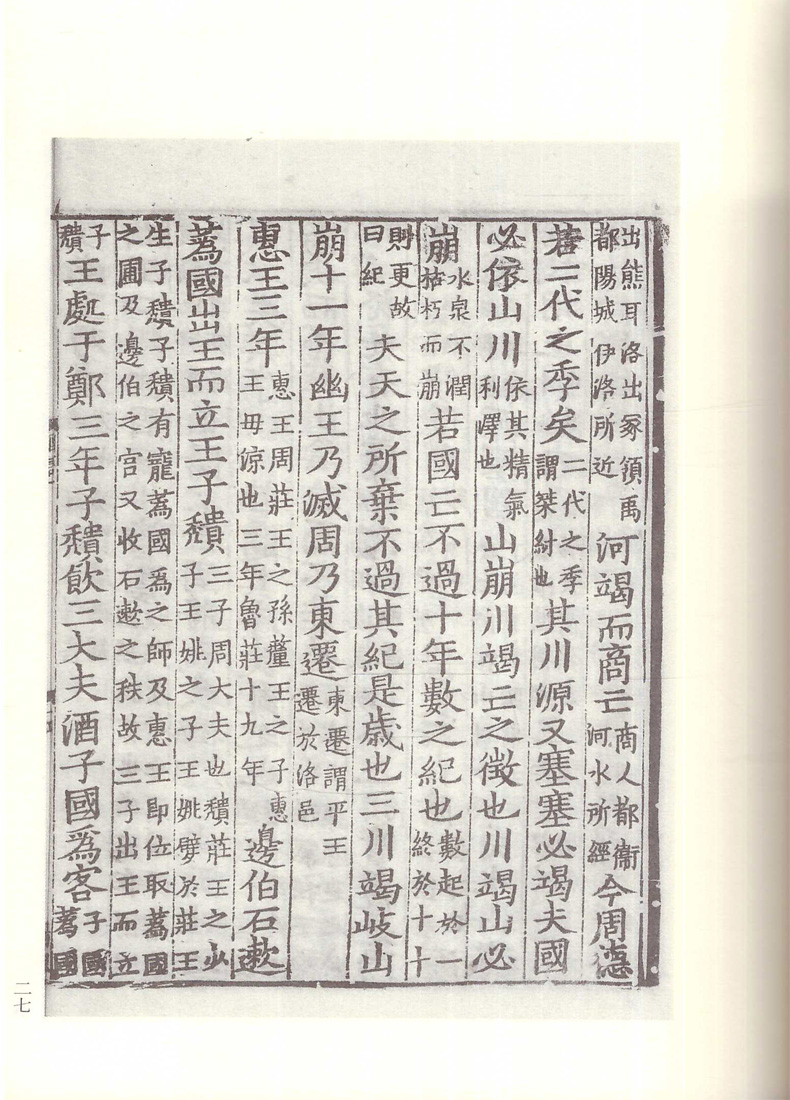 出熊耳洛出冢領禹都陽城伊洛所近河竭而商亡商人都衞河水所經今周德
若二代之季矣二代之季謂桀紂也其川源又塞塞必竭夫國
必依山川依其精氣利澤也山崩川竭亡之徵也川竭山必
崩水泉不潤枯朽而崩若國亡不過十年數之紀也數起於一終於十十
則更故曰紀夫天之所棄不過其紀是歲也三川竭岐山
崩十一年幽王乃滅周乃東遷東遷謂平王遷於洛邑
惠王三年惠王周莊王之孫釐王之子惠王毋涼也三年魯莊十九年邊伯石遬
蒍國出王而立王子穨三子周大夫也穨莊王之少子王姚之子王姚嬖於莊王
生子穨子穨有寵蒍國爲之師及惠王即位取蒍國之圃及邊伯之宮又收石遬之秩故三子出王而立
子穨王處于鄭三年子穨飲三大夫酒子國爲客子國蒍國
二七